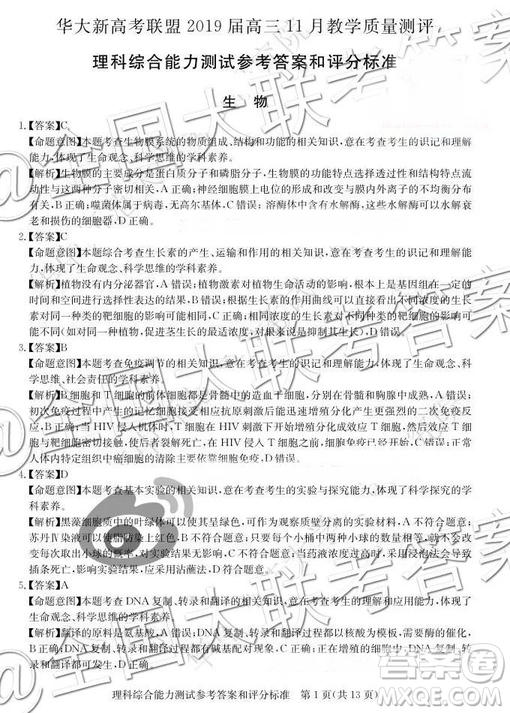 华大新高考联盟2019届高三11月教学质量测评
理科综合能力测试参考答案和评分标准
生 物
1.【答案】C
【命题意图】本题考查生物膜系统的物质组成、结构和功能的相关知识,意在考查考生的识记和理解
能力,体现了生命观念、科学思维的学科素养。
【解析】生物膜的主要成分是蛋白质分子和磷脂分子,生物膜的功能特性选择透过性与膜的结构特点流
动性与这两种成分均相关,A正确;神经细胞膜上电位的形成和改变与膜内外离子的不均衡分布
有关,B正确;噬菌体属于病毒,无高尔基体,C错误;溶酶体中含有水解酶,这些水解酶可以分解衰
老和损伤的细胞器,D正确。
2.【答案】C
【命题意图】本题综合考查生长素的产生、运输和作用的相关知识,意在考查考生的识记和理解能力,
体现了生命观念、科学思维的学科素养。
【解析】植物没有内分泌器官,A错误;植物激素对植物生命活动的影响,根本上是基因组在一定的
时间和空间进行选择性表达的结果,B错误;生长素的作用曲线可以直接体现出不同浓度的生长
素对同一种植物的影响可能不同,生长素对不同种类的靶细胞的影响可能不同
(如对同一种植物,促进茎生长的最适浓度,对根来说是抑制其生长),D错误。
3.【答案】B
【命题意图】本题考查免疫调节的相关知识,意在考查考生的识记和理解能力,体现了生命观念、科
学思维、社会责任的学科素养。
【解析】B细胞和T细胞的前体细胞都是骨髓中的造血干细胞,分别在骨髓和胸腺中成熟,A错误;
初次免疫过程中产生的记忆细胞接受相应抗原刺激后能迅速增殖分化产生更强烈的二次免疫反
应,B正确;当HIV侵入机体时,T细胞在HIV的刺激下会增殖分化产生效应T细胞,然后效应T细
与靶细胞密切接触,使后者裂解死亡,在HIV侵入T细胞之前,细胞免疫已经开始,C错误;正常
人体内特定组织中癌细胞的清除主要依靠细胞免疫,D错误。
4.【答案】D
【命题意图】本题考查基本实验的相关知识,意在考查考生的实验与探究能力,体现了科学思维、科
学探究的学科素养。
【解析】黑藻细胞质中的叶绿体可以使其呈现绿色,可作为观察质壁分离的实验材料,A不符合题意;
苏丹Ⅳ染液可以使脂肪染上红色,B不符合题意;只要每个小桶中两种小球数相等,不影响每次抓
取出相应小球的概率,对实验结果无影响,C不符合题意;当药液浓度过高时,浸泡过久会导致
插条死亡,影响实验结果,应采用沾蘸法,D符合题意。
5.【答案】A
【命题意图】本题考查DNA复制、转录和翻译的相关知识,意在考查考生的理解和应用能力,体现
了生命观念、科学思维的学科素养。
【解析】翻译的原料是氨基酸,A错误;DNA复制、转录和翻译过程都以核酸为模板,需要酶的催化,
B正确;DNA复制、转录和翻译过程都有碱基配对现象,C正确;三个过程都遵循中心法则,D正确。
理科综合能力测试参考答案和评分标准 第1页(共13页)
@全国大联考答案